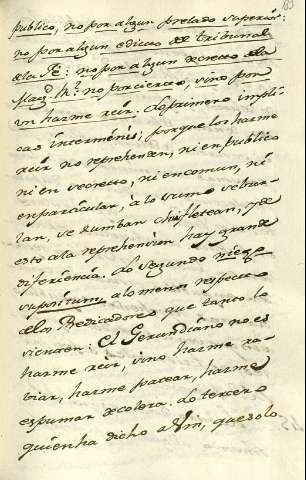 183
publico, no por algun prelado superior:
no por algun edicto del tribunal
de la Fé: no por algun decreto de la
Mag.d R.l no por cierto, sino por
con harme reir. Lo primero impli-
cas interminis; porque los harme
reir no reprehenden, ni en publico
ni en secreto, ni en comun, ni
en particular, a lo sumo se bur-
lan, se zumban, chufletean, y de
esto a la reprehension hay grande
diferencia. Lo segundo niego
supositum a lo menos respecto
de los Predicadores que tanto lo
sienten: el Gerundiano no es
harme reir, sino harme ra-
biar, harme patear, harme
espumar de colera. Lo tercero
quien ha dicho a Vm, que solo